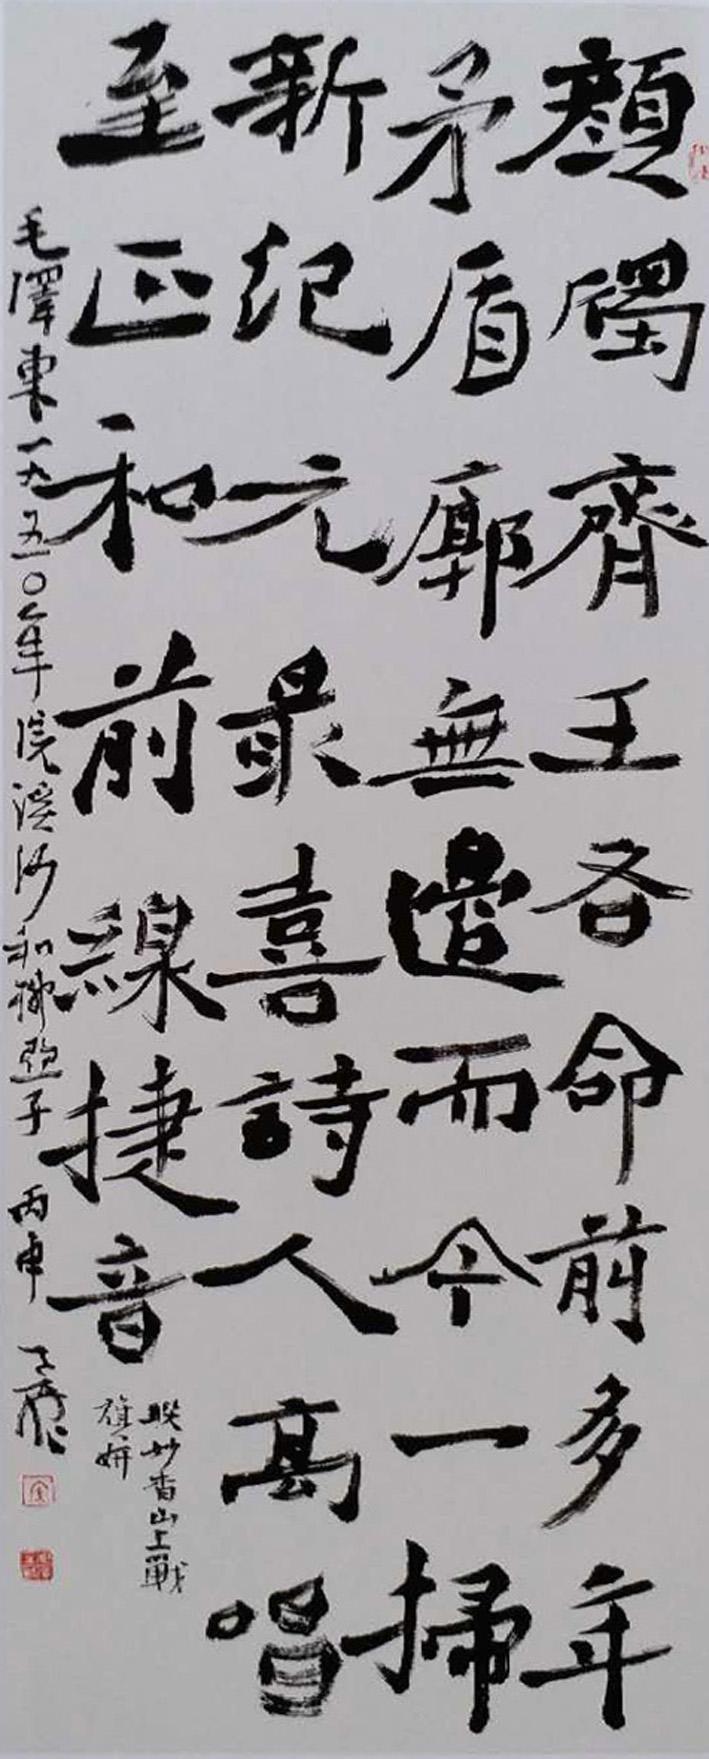 顏斶齊王各命前多年
矛盾廓無邊而今一掃
新紀元最喜詩人高唱
至正和前線捷音
聯妙香山上戰
旗妍
毛澤東一九五〇年浣溪沙和柳亞子 丙申